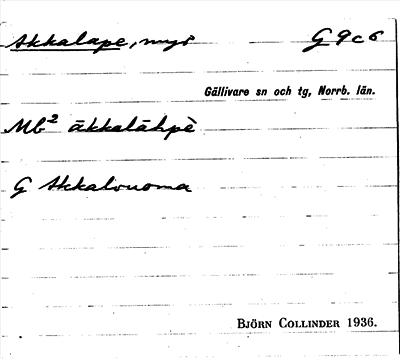 Akkalape, myr G 9 c 6
Gällivare sn och tg, Norrb. län.
Mb² ākkalāhpè
G Akkalvuoma
BJÖRN COLLINDER 1936.